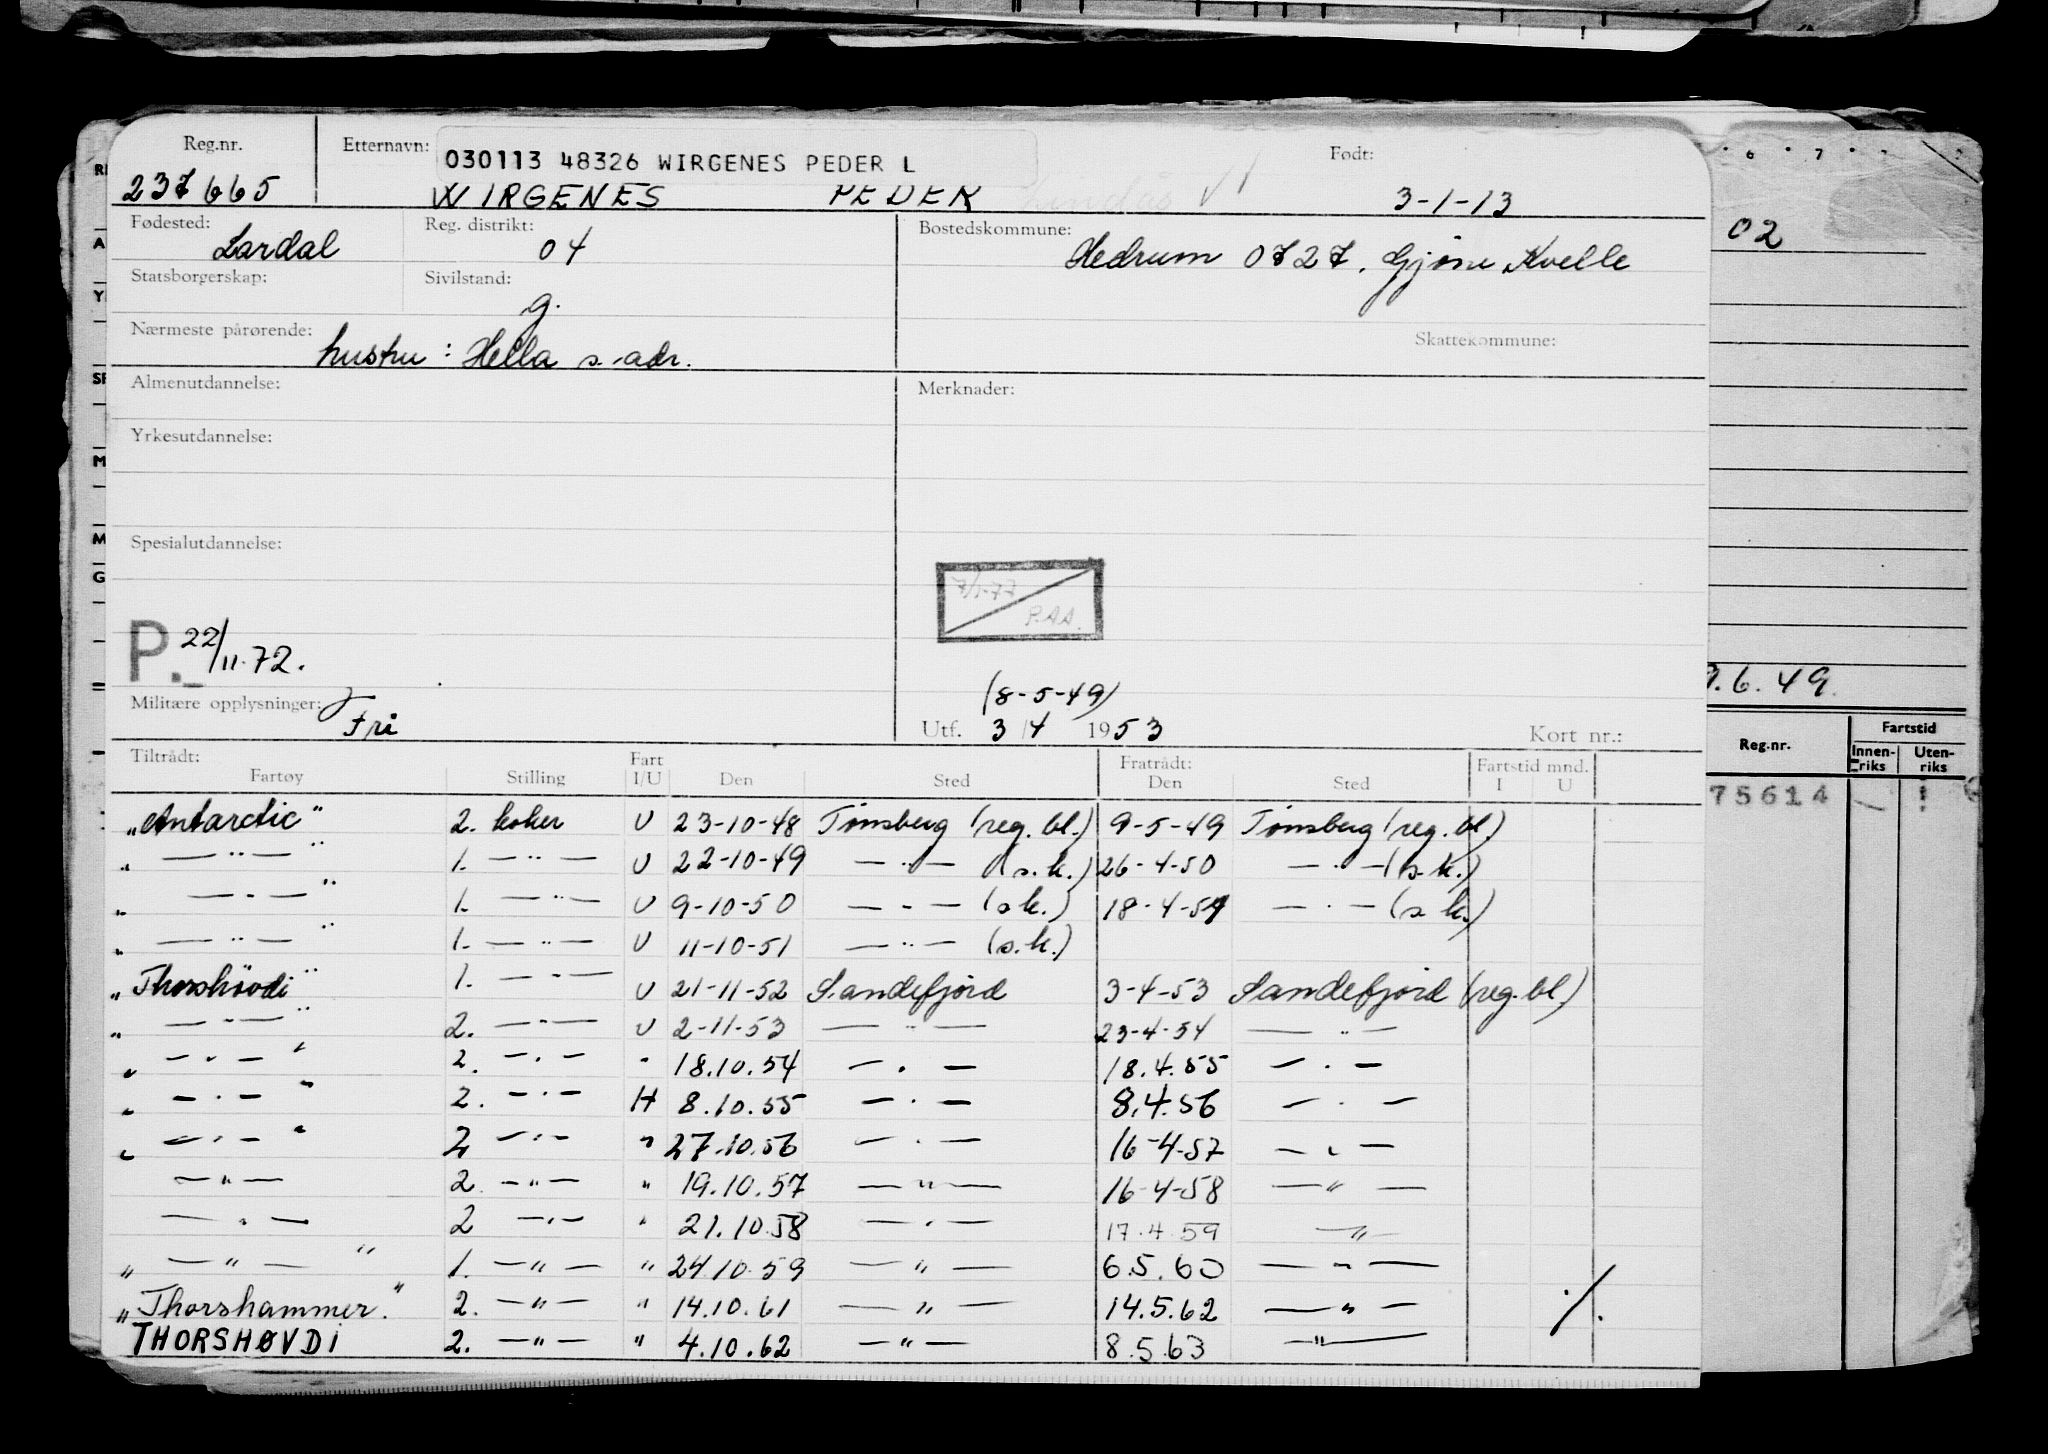 Reg.nr. Etternavn: 030113 48326 WIRGENES PEDER L Født:
237665 WIRGENES PEDER Lindås 3-1-13
Fødested: Lardal Reg. distrikt: 04 Bostedskommune: Hedrum 0727. Gjøne, Kvelle
02
Statsborgerskap: Sivilstand: g.
Nærmeste pårørende: hustru: Hella s. adr. Skattekommune:
Almenutdannelse: Merknader:
Yrkesutdannelse:
Spesialutdannelse:
7/1-77 P.AA.
P. 22/11.72.
.6.49.
(8-5-49)
Militære opplysninger: Fri Utf. 3/4 1953 Kort nr.:
Reg.nr. Fartstid Innen-riks Uten-riks
Tiltrådt: Fratrådt:
Fartøy Stilling Fart I/U Den Sted Den Sted Fartstid mnd. I U
75614
„Antarctic" 2. koker U 23-10-48 Tønsberg (reg. bl.) 9-5-49 Tønsberg (reg. bl.)
„ — " — " 1. — " — U 22-10-49 — " — (s.k.) 26-4-50 — " — (s.k.)
„ — " — " 1. — " — U 9-10-50 — " — (s.k.) 18-4-51 — " — (s.k.)
„ — " — " 1. — " — U 11-10-51 — " — (s.k.)
„Thorshövdi" 1. — " — U 21-11-52 Sandefjord 3-4-53 Sandefjord (reg. bl.)
„ — " — " 2. — " — U 2-11-53 — " — 23-4-54 — " —
„ — " — " 2. — " — " 18.10.54 — " — 18.4.55 — " —
„ — " — " 2. — " — H 8.10.55 — " — 8.4.56 — " —
„ — " — " 2 — " — " 27.10.56 — " — 16-4-57 — " —
— " — 2. — " — " 19.10.57 — " — 16-4-58 — " —
— " — 2 — " — " 21.10.58 — " — 17.4.59 — " —
„ — " — " 1. — " — " 24.10.59 — " — 6.5.60 — " —
„Thorshammer." 2. — " — " 14.10.61 — " — 14.5.62 — " — ./.
THORSHØVDI 2. — " — " 4.10.62 — " — 8.5.63 — " —